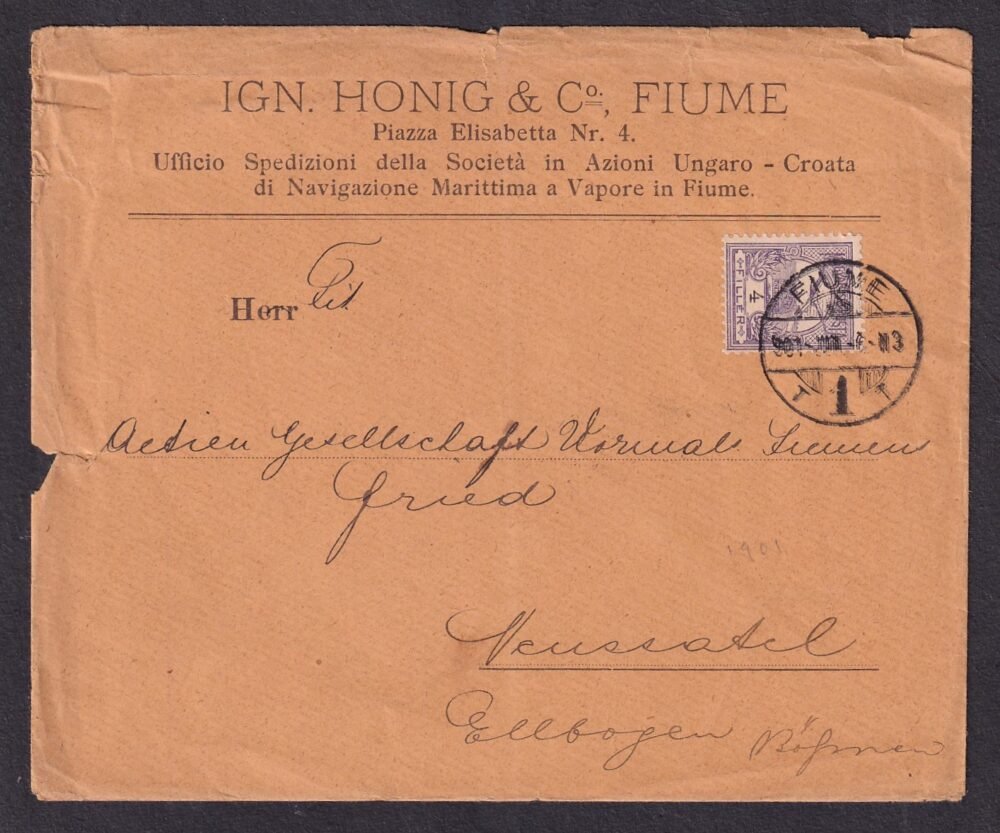 IGN. HONIG & Co., FIUME
Piazza Elisabetta Nr. 4.
Ufficio Spedizioni della Società in Azioni Ungaro - Croata
di Navigazione Marittima a Vapore in Fiume.
Herr Tit
4
FILLER
FIUME
901
1
Actien Gesellschaft Vormals Siemens
Fried
1901
Neussatel
Ellbogen Böhmen